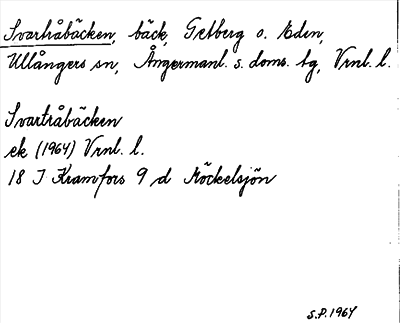 Svartråbäcken, bäck, Getberg o. Eden,
Ullångers sn, Ångermanl. s. doms. tg, Vrnl. l.
Svartråbäcken
ek (1964) Vrnl. l.
18 I Kramfors 9 d Möckelsjön
S.P. 1964